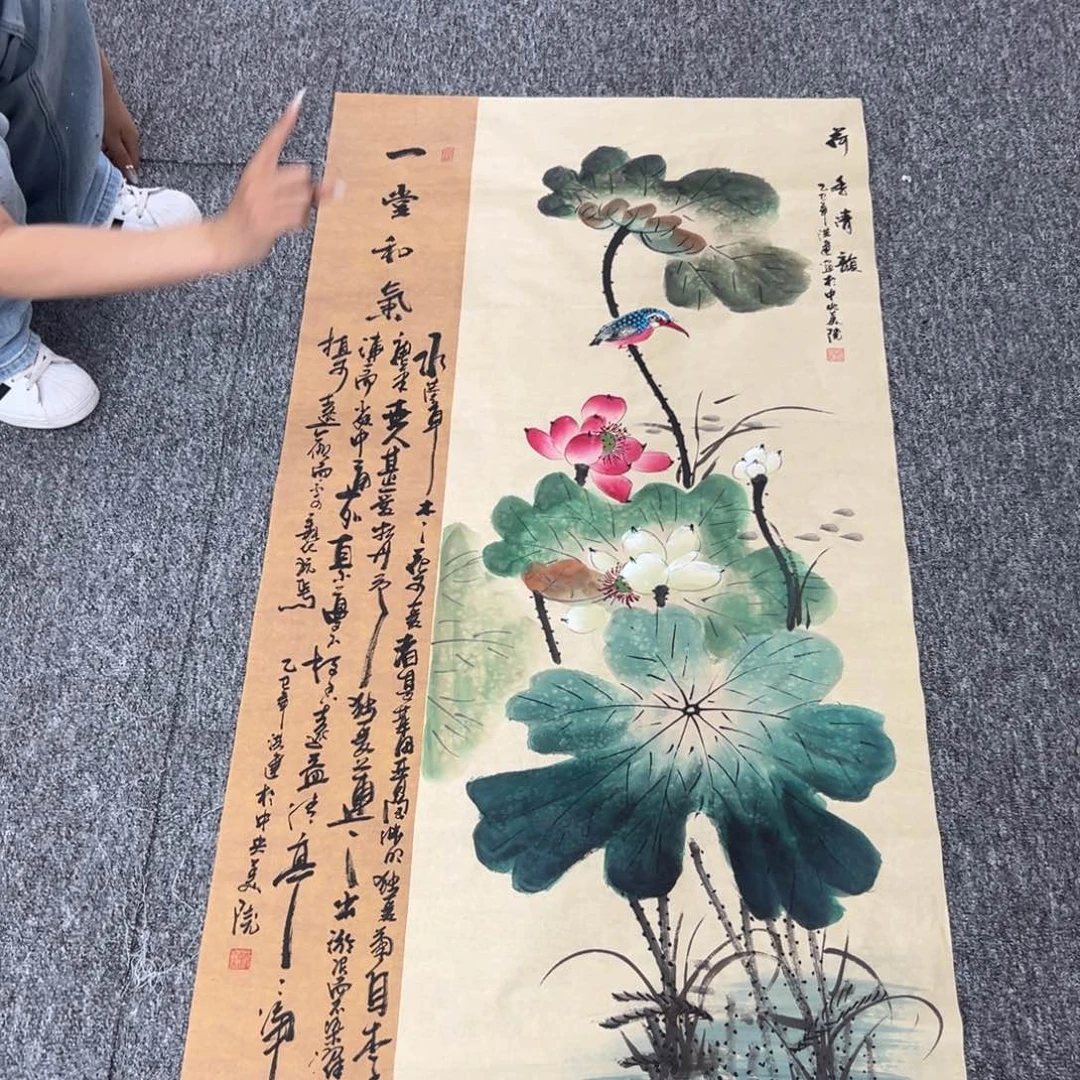 荷香清韻
乙巳年洪蓮寫於中央美院
一堂和氣
水陸草木之花可爱者甚蕃晋陶渊明独爱菊自李
唐来世人甚爱牡丹予独爱蓮之出淤泥而不染濯清
漣而不妖中通外直不蔓不枝香遠益清亭亭净
植可遠觀而不可亵玩焉
乙巳年洪蓮於中央美院